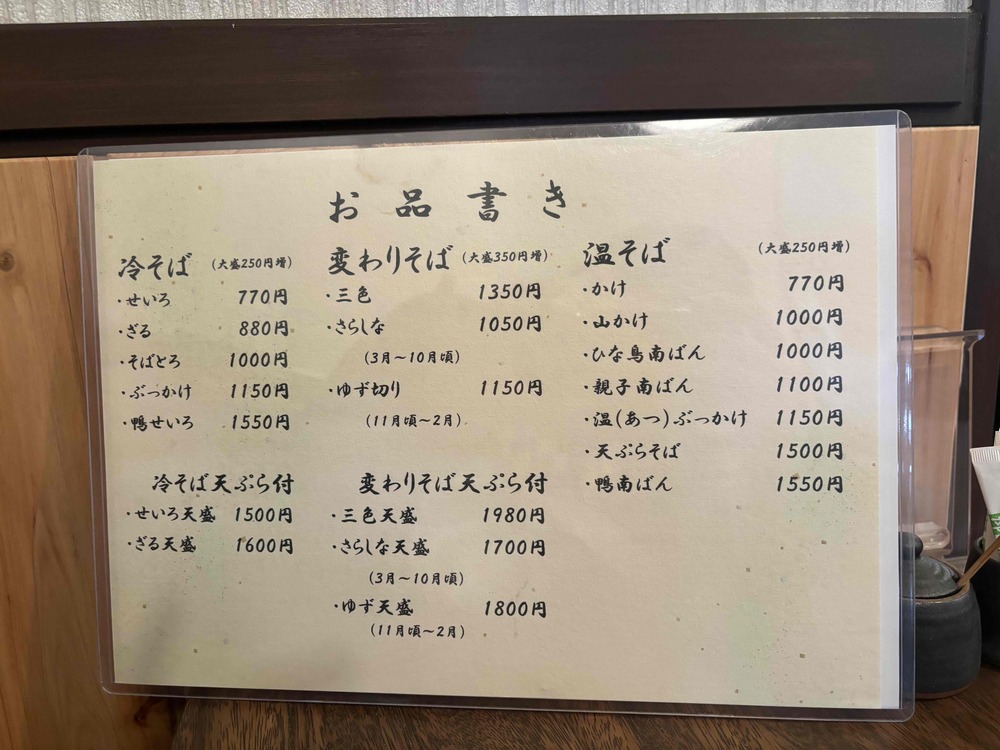 お品書き
冷そば (大盛250円増)
・せいろ 770円
・ざる 880円
・そばとろ 1000円
・ぶっかけ 1150円
・鴨せいろ 1550円
冷そば天ぷら付
・せいろ天盛 1500円
・ざる天盛 1600円
変わりそば (大盛350円増)
・三色 1350円
・さらしな 1050円
(3月～10月頃)
・ゆず切り 1150円
(11月頃～2月)
変わりそば天ぷら付
・三色天盛 1980円
・さらしな天盛 1700円
(3月～10月頃)
・ゆず天盛 1800円
(11月頃～2月)
温そば (大盛250円増)
・かけ 770円
・山かけ 1000円
・ひな鳥南ばん 1000円
・親子南ばん 1100円
・温(あつ)ぶっかけ 1150円
・天ぷらそば 1500円
・鴨南ばん 1550円